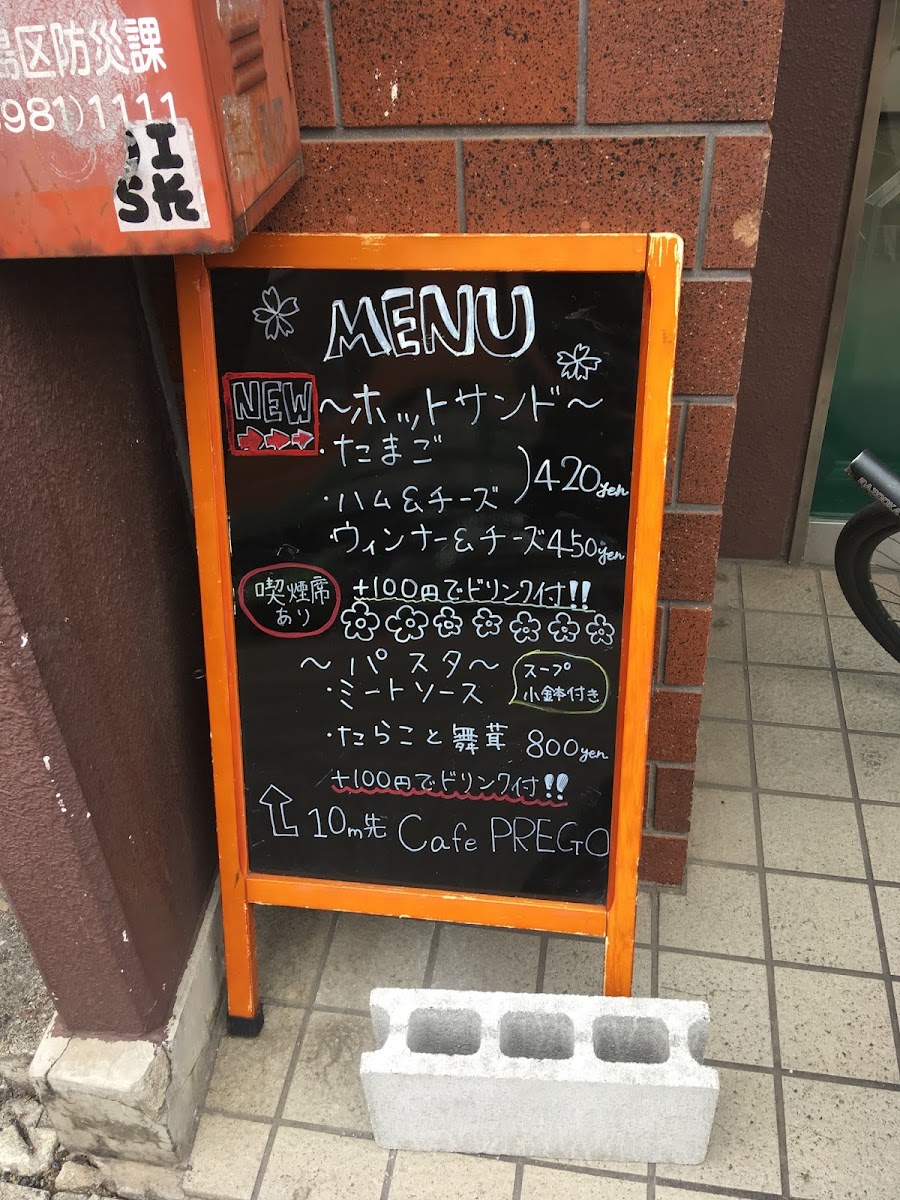 島区防災課
3981)1111
MENU
NEW
～ホットサンド～
・たまご
・ハム&チーズ
420yen
・ウィンナー&チーズ450yen
喫煙席
あり
+100円でドリンク付!!
～パスタ～
・ミートソース
スープ
小鉢付き
・たらこと舞茸 800yen
+100円でドリンク付!!
10m先 Cafe PREGO